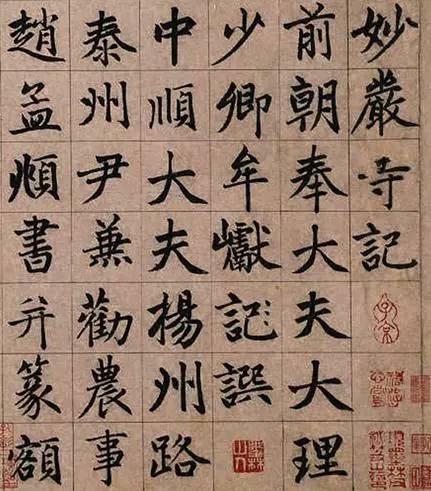 妙嚴寺記
前朝奉大夫大理
少卿牟巘記譔
中順大夫揚州路
泰州尹兼勸農事
趙孟頫書并篆額